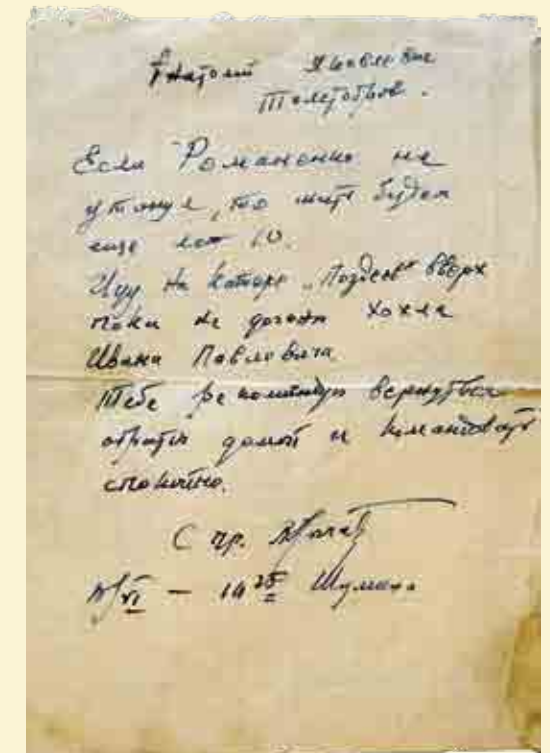 Анатолий Яковлевич
Если Романенко не
утонул, то жить будем
еще лет 10.
Иду на катере „Поздеев" вверх
пока не догоню хохла
Ивана Павловича
Тебе рекомендую вернуться
обратно домой и командовать
спокойно.
С пр.
VI – 14 25 Шумиха